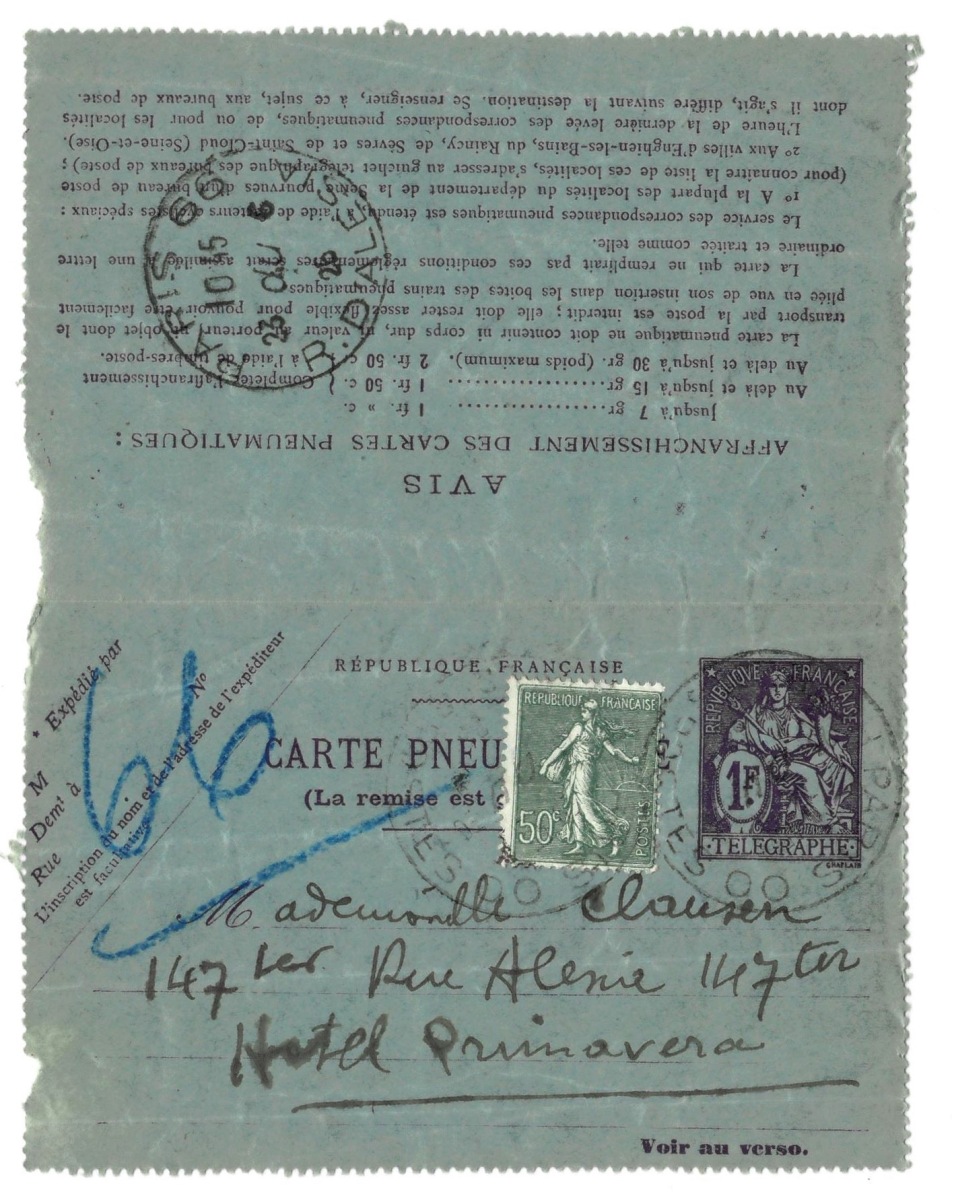 AVIS
AFFRANCHISSEMENT DES CARTES PNEUMATIQUES :
Jusqu'à 7 gr. 1 fr. » c.
Au delà et jusqu'à 15 gr. 1 fr. 50 c. } Compléter l'affranchissement
Au delà et jusqu'à 30 gr. (poids maximum). 2 fr. 50 c. } à l'aide de timbres-poste.
La carte pneumatique ne doit contenir ni corps dur, ni valeur au porteur, ni objet dont le
transport par la poste est interdit ; elle doit rester assez flexible pour pouvoir être facilement
pliée en vue de son insertion dans les boîtes des trains pneumatiques.
La carte qui ne remplirait pas ces conditions réglementaires serait assimilée à une lettre
ordinaire et traitée comme telle.
Le service des correspondances pneumatiques est étendu, à l'aide de facteurs cyclistes spéciaux :
1° A la plupart des localités du département de la Seine pourvues d'un bureau de poste
(pour connaître la liste de ces localités, s'adresser au guichet télégraphique des bureaux de poste) ;
2° Aux villes d'Enghien-les-Bains, du Raincy, de Sèvres et de Saint-Cloud (Seine-et-Oise).
L'heure de la dernière levée des correspondances pneumatiques, de ou pour les localités
dont il s'agit, diffère suivant la destination. Se renseigner, à ce sujet, aux bureaux de poste.
PARIS 66
10 45
25
26
R. D'ALESIA
RÉPUBLIQUE FRANÇAISE
CARTE PNEU
(La remise est
* Expédié par
M
Demt à
Rue N°
L'inscription du nom et de l'adresse de l'expéditeur
est facultative.
66
REPUBLIQUE FRANÇAISE
50c
POSTES
REPUBLIQUE FRANÇAISE
1F.
TELEGRAPHE
CHAPLAIN
PARIS
Mademoiselle Clausen
147 ter Rue Alesia 147 ter
Hotel Primavera
Voir au verso.